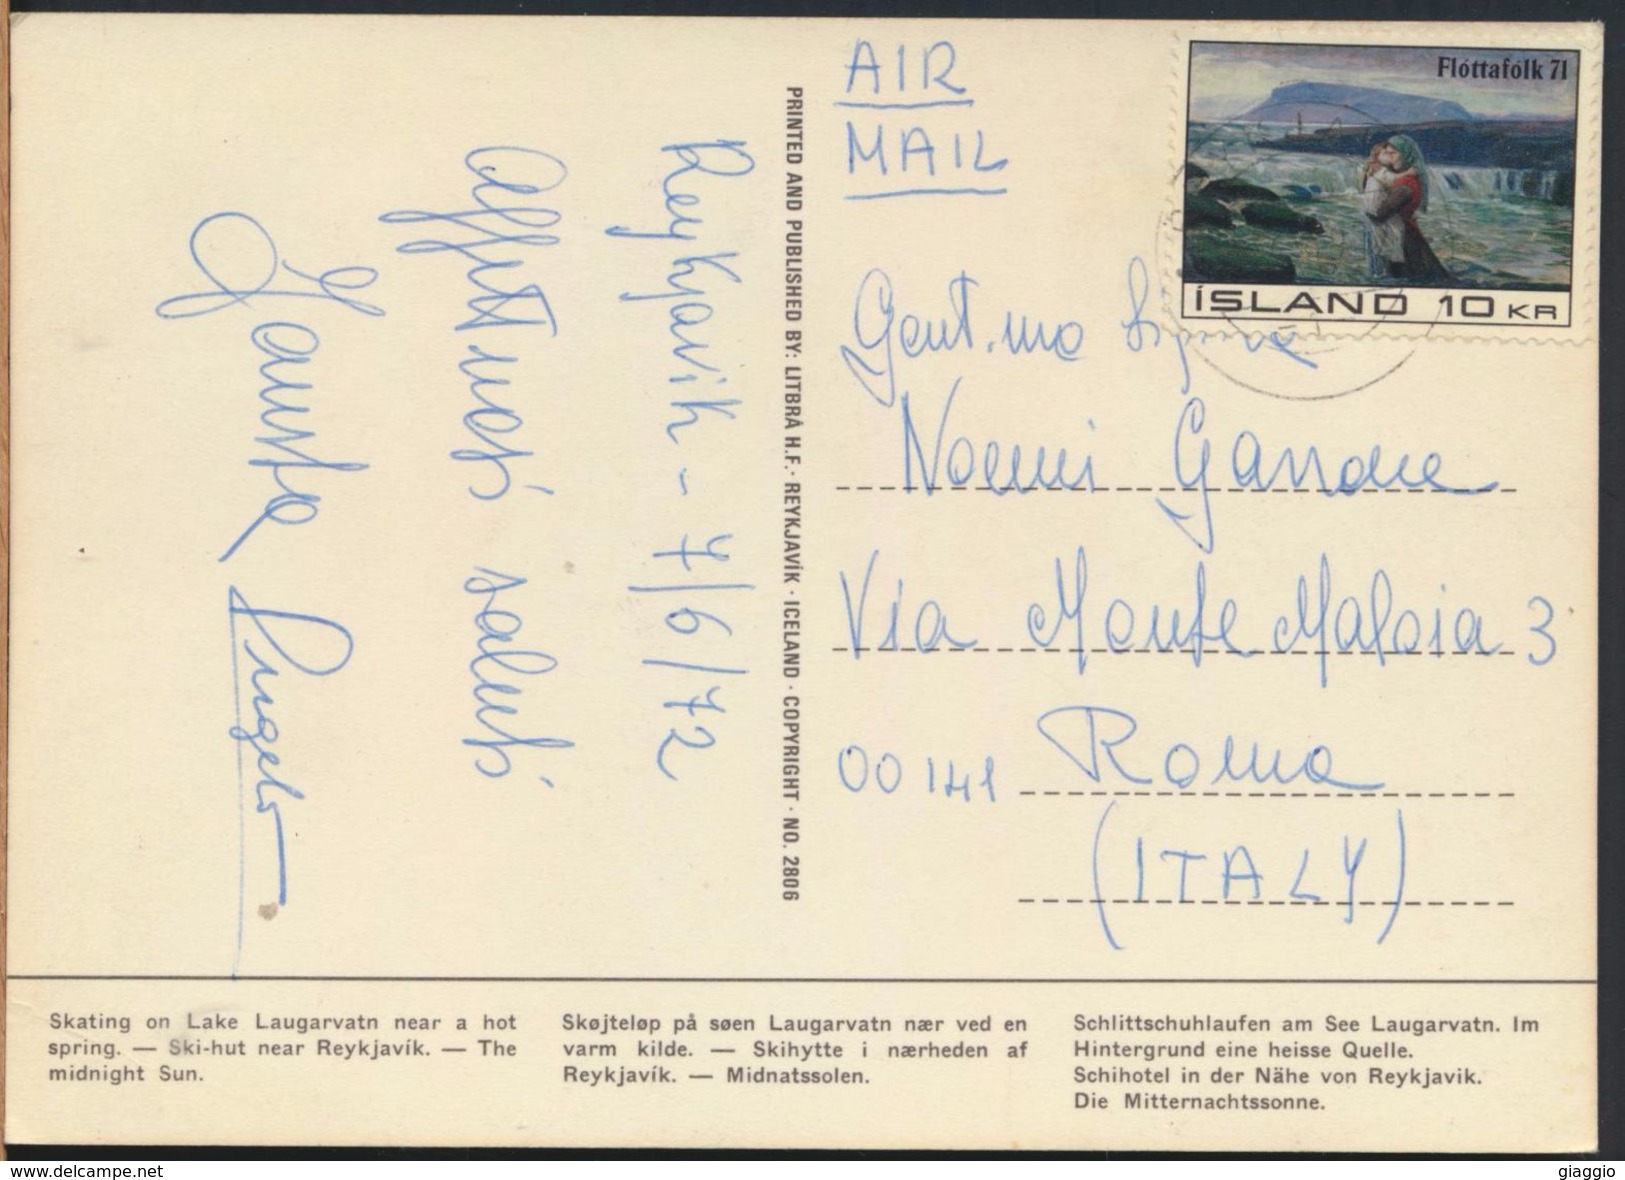 Reykjavik - 7/6/72
Affettuosi saluti
AIR
MAIL
Flóttafólk 71
ÍSLAND 10 KR
Gent.ma
Noemi
Via Monte Maloia 3
00141 Roma
(ITALY)
PRINTED AND PUBLISHED BY: LITBRÁ H.F. · REYKJAVÍK · ICELAND · COPYRIGHT · NO. 2806
Skating on Lake Laugarvatn near a hot
spring. — Ski-hut near Reykjavík. — The
midnight Sun.
Skøjteløp på søen Laugarvatn nær ved en
varm kilde. — Skihytte i nærheden af
Reykjavík. — Midnatssolen.
Schlittschuhlaufen am See Laugarvatn. Im
Hintergrund eine heisse Quelle.
Schihotel in der Nähe von Reykjavik.
Die Mitternachtssonne.
www.delcampe.net
giaggio